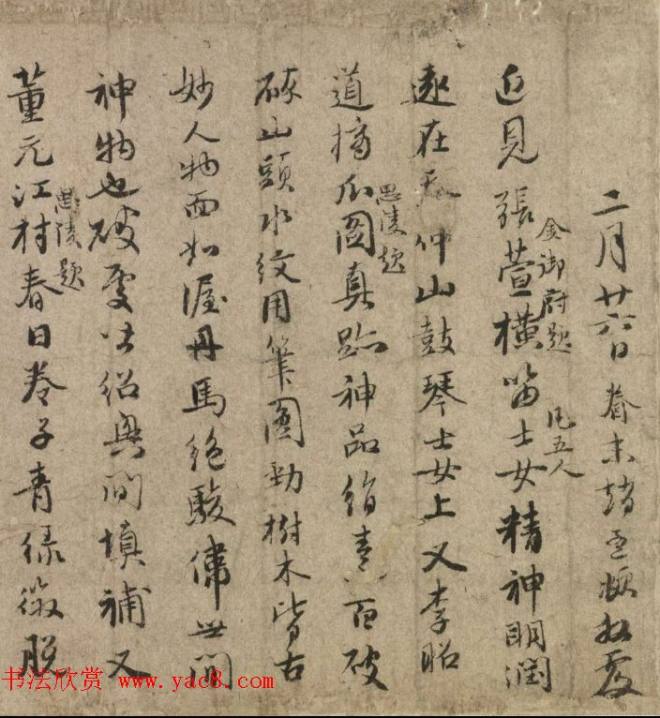 二月廿六日 眷末趙孟頫 覆
近見張萱橫笛士女精神明潤
金御府題 凡五人
遠在 仲山鼓琴士女上又李昭
道摘瓜圖真跡神品絹素百破
思陵題
碎山頭水紋用筆圓勁樹木皆古
妙人物面如渥丹馬絕駿偉世間
神物也破處皆紹興間填補又
董元江村春日卷子青綠微脫
思陵題
书法欣赏 www.yac8.com